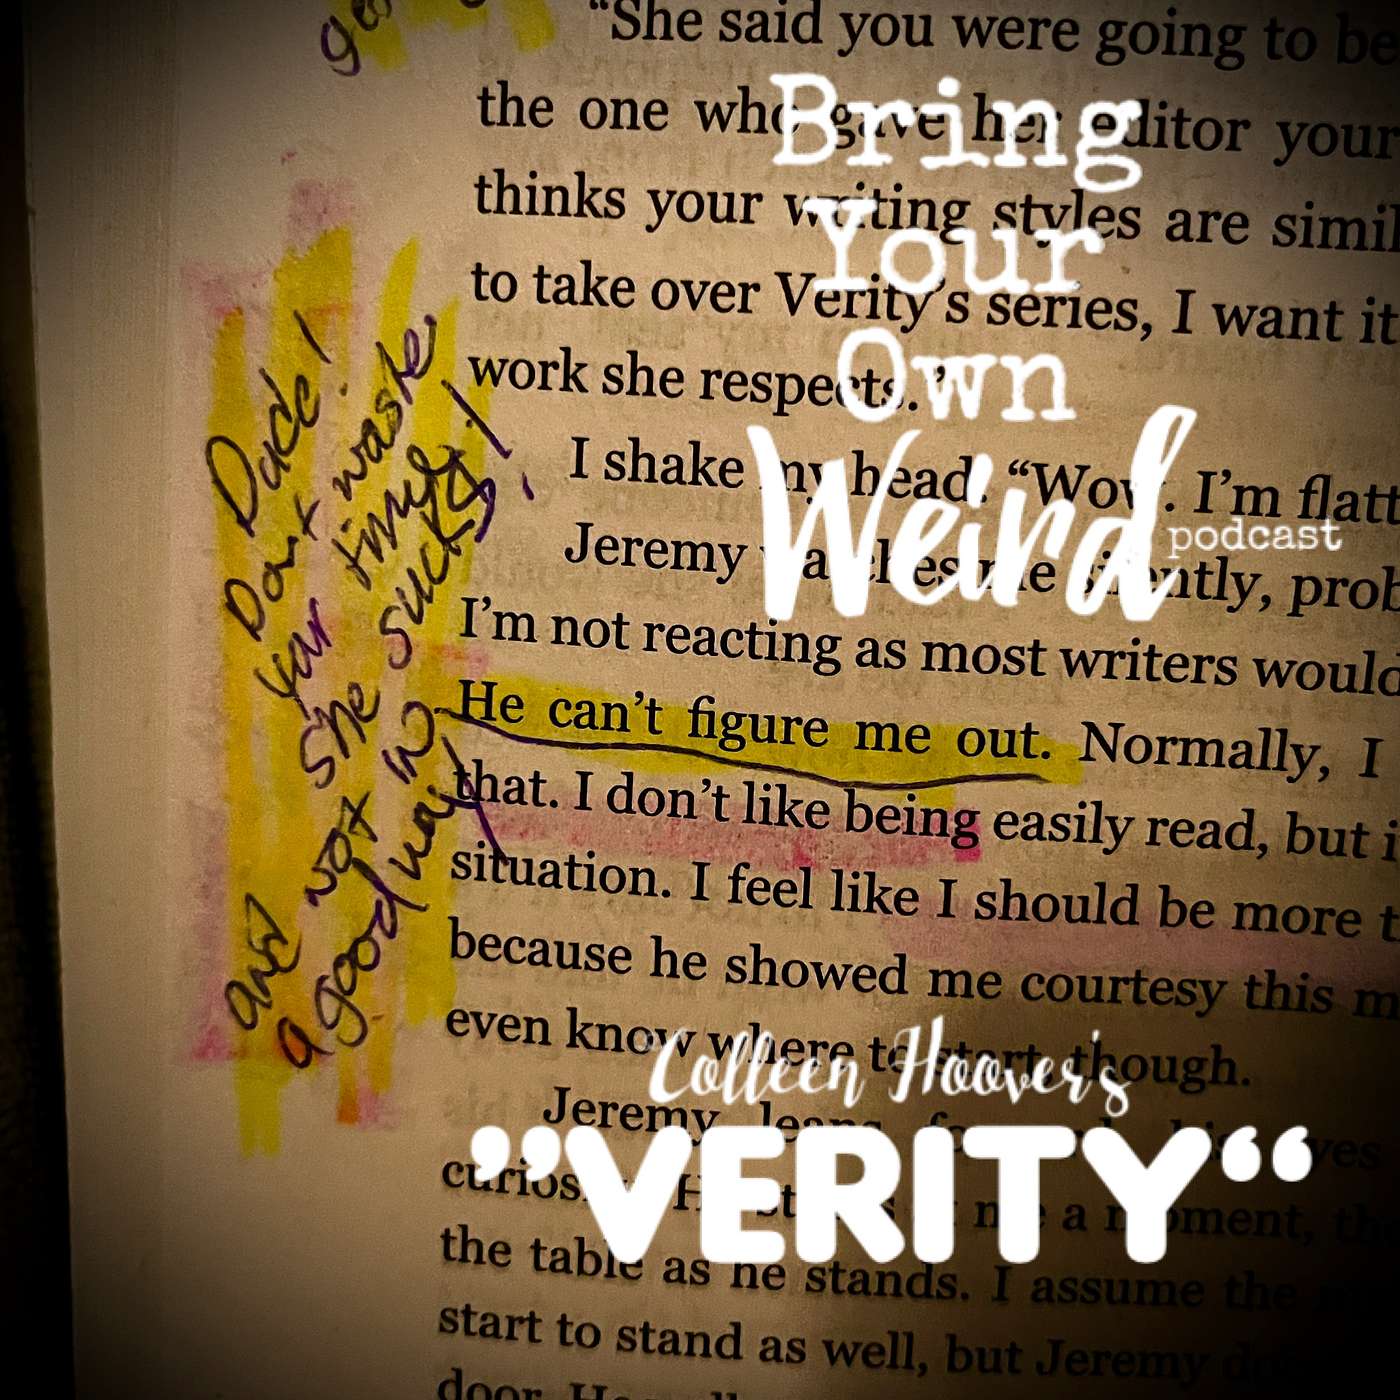 "She said you were going to be
the one who gave her editor your
thinks your writing styles are simil
to take over Verity's series, I want it
work she respects."
I shake my head. "Wow. I'm flatt
Jeremy watches me silently, prob
I'm not reacting as most writers would
He can't figure me out. Normally, I
that. I don't like being easily read, but i
situation. I feel like I should be more t
because he showed me courtesy this m
even know where to start, though.
Jeremy leans
curios
the table as he stands. I assume the
start to stand as well, but Jeremy
door.
Dude!
Don't waste
your time
She sucks!
and not in
a good way!
Bring
Your
Own
Weird
podcast
Colleen Hoover's
”VERITY“